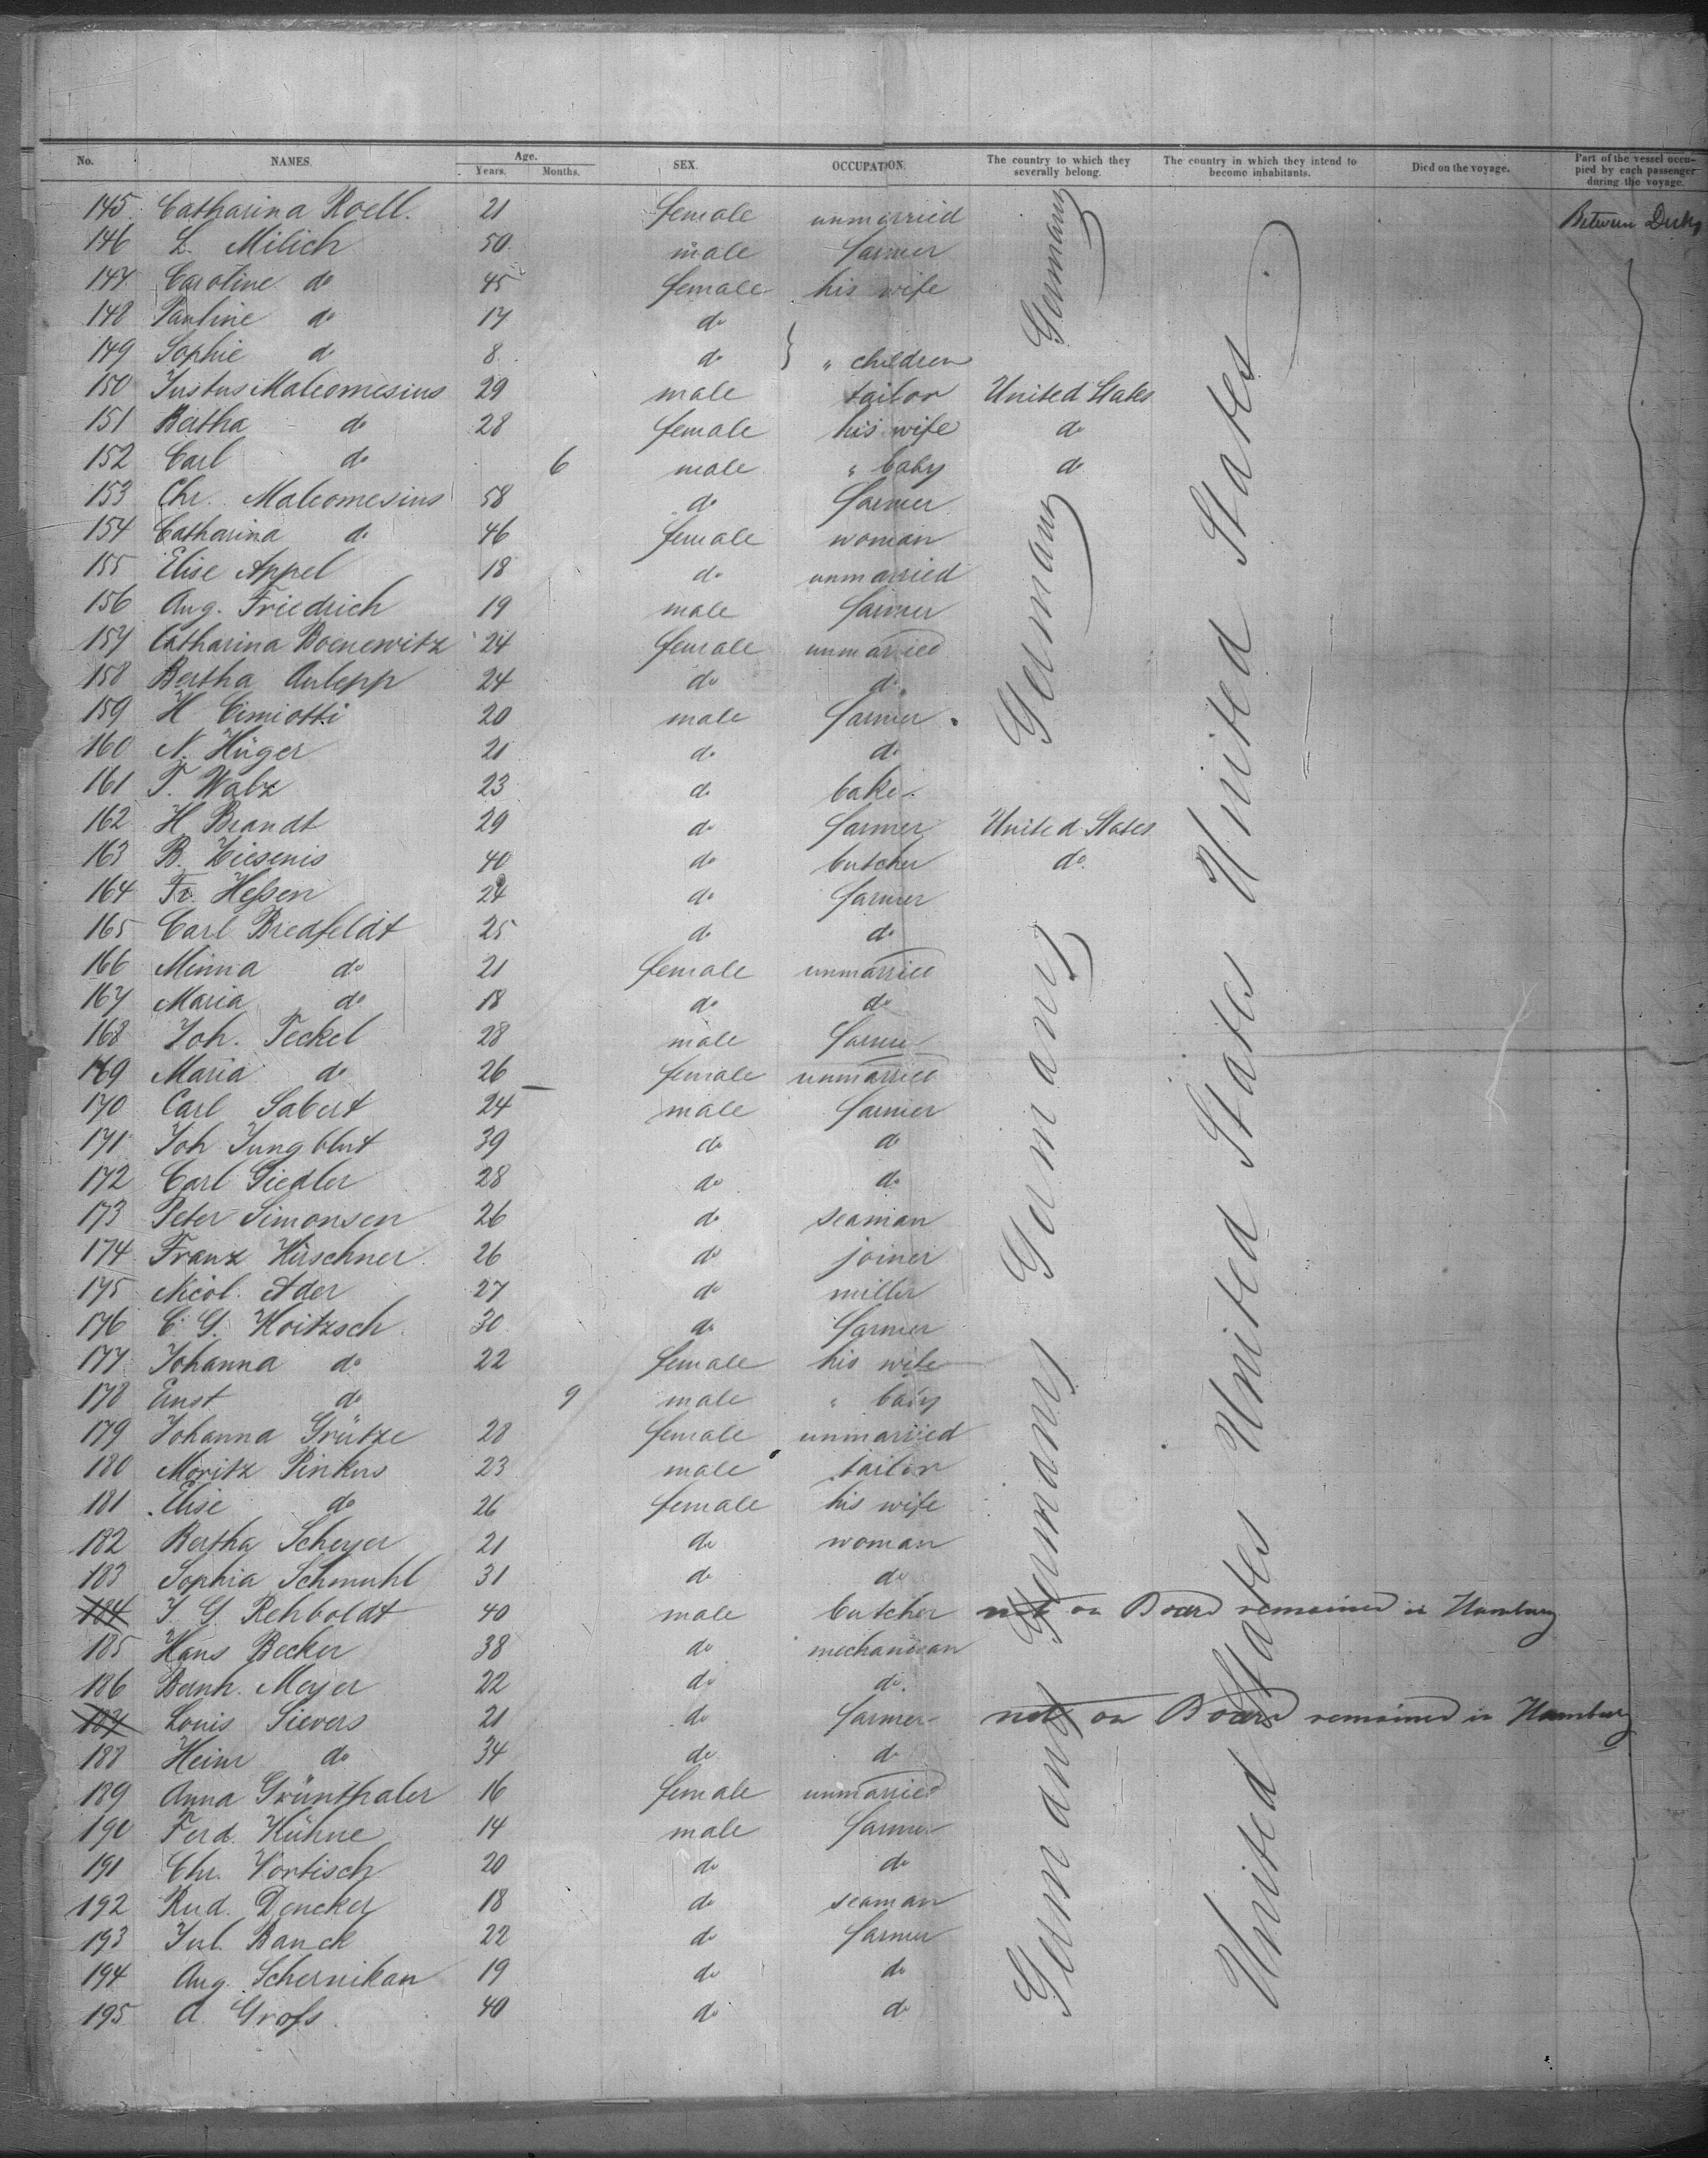 No. NAMES. Age. Years. Months. SEX. OCCUPATION. The country to which they severally belong. The country in which they intend to become inhabitants. Died on the voyage. Part of the vessel occupied by each passenger during the voyage.
145 Catharina Roell. 21 female unmarried Germany United States Between Decks
146 L. Milich 50 male farmer
147 Caroline do 45 female his wife
148 Pauline do 17 do
149 Sophie do 8 do } " children
150 Justus Malcomesius 29 male tailor United States
151 Bertha do 28 female his wife do
152 Carl do 6 male " baby do
153 Chr. Malcomesius 58 do farmer Germany
154 Catharina do 46 female woman
155 Elise Appel 18 do unmarried
156 Aug. Friedrich 19 male farmer
157 Catharina Boenewitz 24 female unmarried
158 Bertha Aulepp 24 do do
159 H Cimiotti 20 male farmer
160 N. Hüger 21 do do
161 F. Walz 23 do baker
162 H Brandt 29 do farmer United States
163 B. Ziesenis 40 do butcher do
164 Fr. Heßen 24 do farmer Germany
165 Carl Bredfeldt 25 do do United States
166 Minna do 21 female unmarried
167 Maria do 18 do do
168 Joh. Feckel 28 male farmer
169 Maria do 26 female unmarried
170 Carl Sabert 24 male farmer
171 Joh Jungblut 39 do do
172 Carl Giedler 28 do do
173 Peter Simonsen 26 do seaman
174 Franz Hirschner 26 do joiner
175 Nicol. Ader 27 do miller
176 C. G. Hoitzsch 30 do farmer Germany
177 Johanna do 22 female his wife
178 Ernst do 9 male " baby
179 Johanna Grütze 28 female unmarried
180 Moritz Pinkus 23 male tailor
181 Elise do 26 female his wife
182 Bertha Scheyer 21 do woman United States
183 Sophia Schmuhl 31 do do
184 J. G. Rehboldt 40 male butcher not on Board remained in Hamburg
185 Hans Becker 38 do mechanician
186 Bernh. Meyer 22 do do Germany
187 Louis Sievers 21 do farmer not on Board remained in Hamburg
188 Heinr do 34 do do
189 Anna Grünthaler 16 female unmarried
190 Ferd. Kühne 14 male farmer
191 Chr. Vortisch 20 do do
192 Rud. Dencker 18 do seaman
193 Jul. Banck 22 do farmer
194 Aug. Schernikau 19 do do
195 A. Groß 40 do do